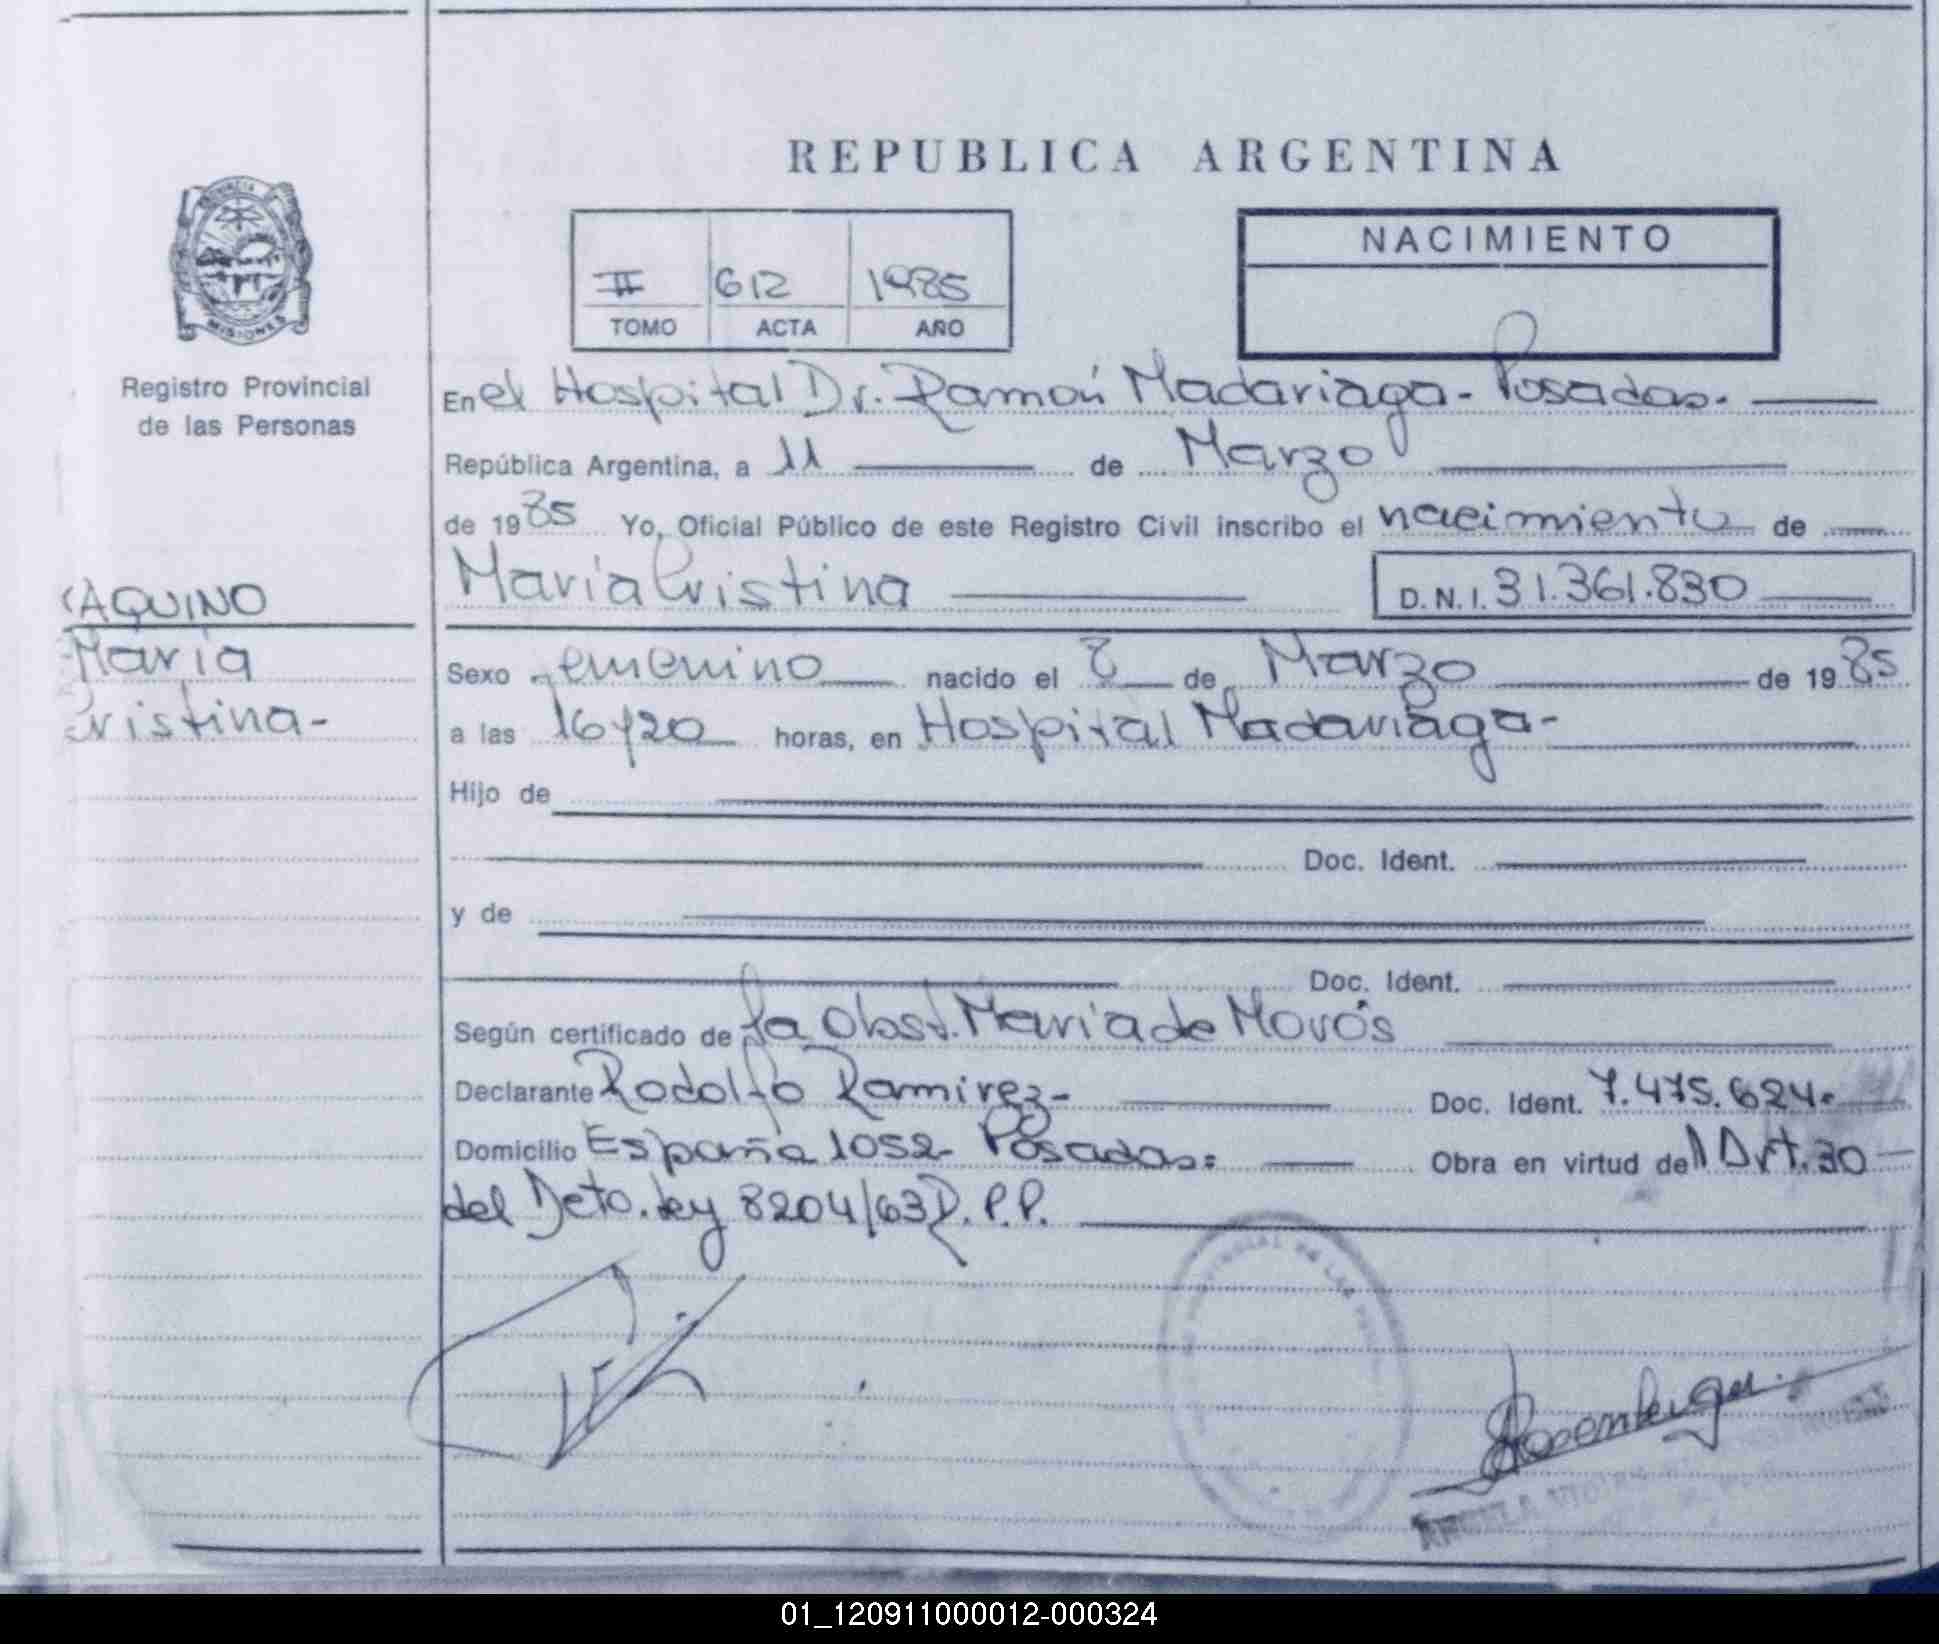 REPUBLICA ARGENTINA
PROVINCIA
MISIONES
Registro Provincial
de las Personas
II 612 1985
TOMO ACTA AÑO
NACIMIENTO
En el Hospital Dr. Ramón Madariaga - Posadas.
República Argentina, a 11 de Marzo
de 1985 Yo, Oficial Público de este Registro Civil inscribo el nacimiento de
María Cristina D.N.I. 31.361.830
AQUINO
María
Cristina-
Sexo femenino nacido el 8 de Marzo de 1985
a las 16y20 horas, en Hospital Madariaga-
Hijo de
Doc. Ident.
y de
Doc. Ident.
Según certificado de la Obst. María de Morós
Declarante Rodolfo Ramirez- Doc. Ident. 7.475.624.
Domicilio España 1052- Posadas: Obra en virtud del Art. 30
del Dcto. Ley 8204/63 R.P.P.
01_120911000012-000324